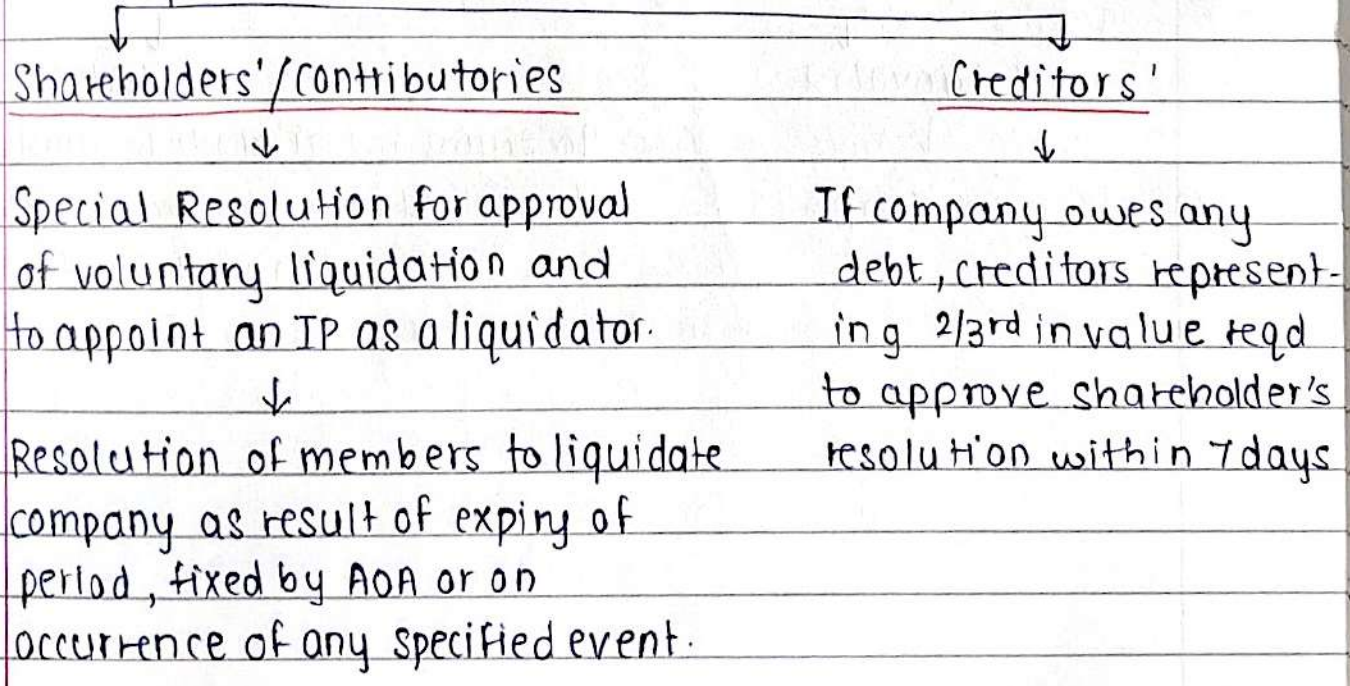 Shareholders'/Contributories
Special Resolution for approval
of voluntary liquidation and
to appoint an IP as a liquidator.
Resolution of members to liquidate
company as result of expiry of
period, fixed by AOA or on
occurrence of any specified event.
Creditors'
If company owes any
debt, creditors represent-
ing 2/3rd in value reqd
to approve shareholder's
resolution within 7 days